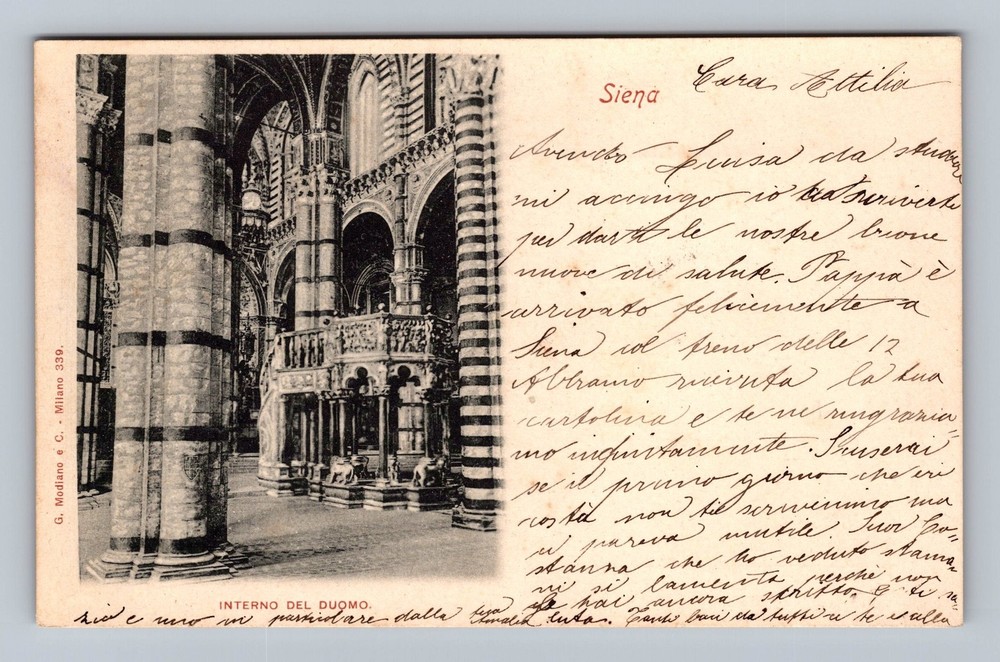 Siena
Cara Attilia
Avendo Luisa da studiare
mi accingo io a scriverti
per darti le nostre buone
nuove di salute. Pappà è
arrivato felicemente a
Siena col treno delle 12
Abbiamo ricevuta la tua
cartolina e te ne ringrazia=
mo infinitamente. Scuserai
se il primo giorno che eri
costà non ti scrivemmo ma
ci pareva inutile. Suor Co-
stanza che ho veduto stama=
ni si lamenta perchè non
le hai ancora scritto.
zie e uno in particolare dalla tua
Tanti baci da tutti a te e alla
INTERNO DEL DUOMO.
G. Modiano e C. - Milano 339.